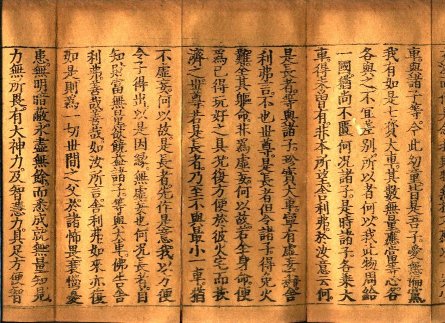 車與諸子等今此幼童皆是吾子愛無偏黨
我有如是七寶大車其數無量應當等心各
各與之不宜差別所以者何以我此物周給
一國猶尚不匱何況諸子是時諸子各乘大
車得未曾有非本所望舍利弗於汝意云何
是長者等與諸子珍寶大車寧有虛妄不舍
利弗言不也世尊是長者但令諸子得免火
難全其軀命非為虛妄何以故若全身命便
為已得玩好之具況復方便於彼火宅而拔
濟之世尊若是長者乃至不與最小一車猶
不虛妄何以故是長者先作是意我以方便
令子得出以是因緣無虛妄也何況長者自
知財富無量欲饒益諸子等與大車佛告舍
利弗善哉善哉如汝所言舍利弗如來亦復
如是則為一切世間之父於諸怖畏衰惱憂
患無明暗蔽永盡無餘而悉成就無量知見
力無所畏有大神力及智慧力具足方便智